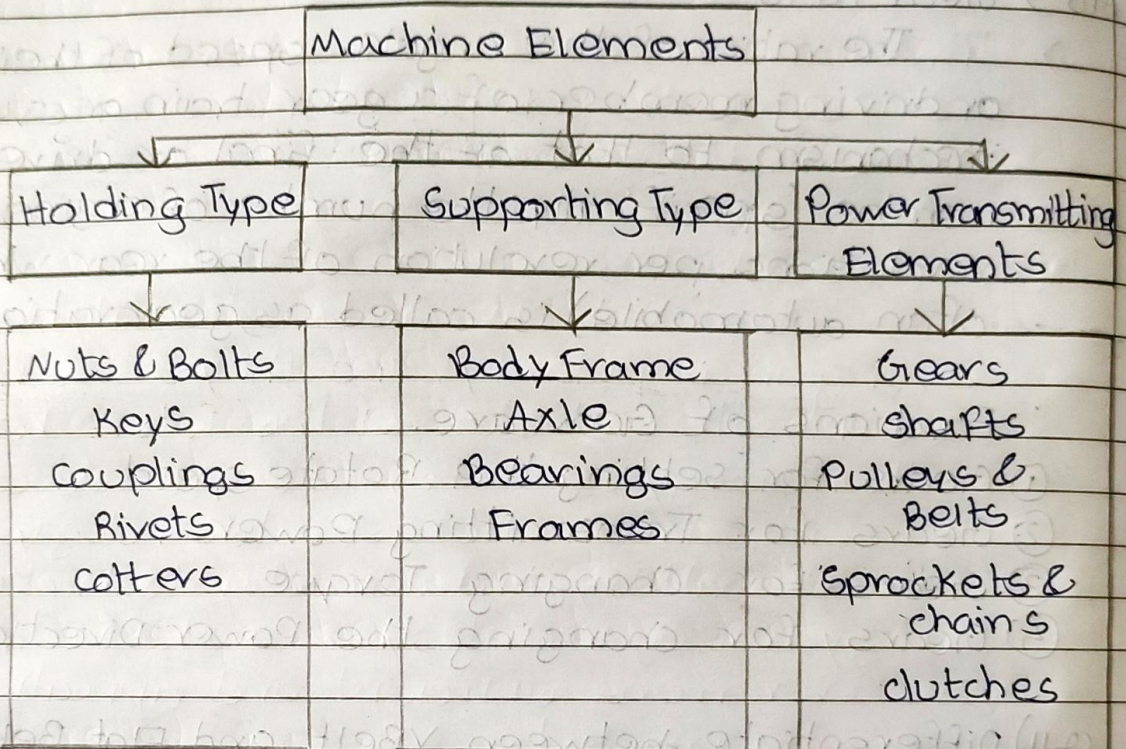 Machine Elements
Holding Type
Supporting Type
Power Transmitting
Elements
Nuts & Bolts
Keys
Couplings
Rivets
Cotters
Body Frame
Axle
Bearings
Frames
Gears
Shafts
Pulleys &
Belts
Sprockets &
chains
clutches